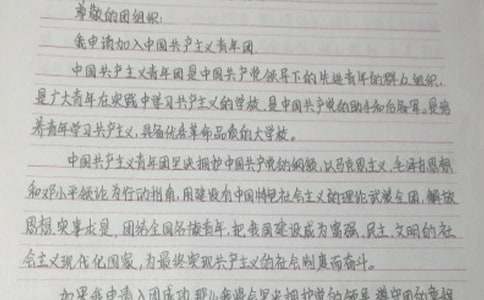 尊敬的团组织:
我申请加入中国共产主义青年团.
中国共产主义青年团是中国共产党领导下的先进青年的群众组织,
是广大青年在实践中学习共产主义的学校,是中国共产党的助手和后备军.是培
养青年学习共产主义,具备优秀革命品质的大学校。
中国共产主义青年团坚决拥护中国共产党的纲领,以马克思主义,毛泽东思想
和邓小平理论为行动指南,用建设有中国特色社会主义的理论武装全团,解放
思想,实事求是,团结全国各族青年,把我国建设成为富强、民主、文明的社
会主义现代化国家,为最终实现共产主义的社会制度而奋斗。
如果我申请入团成功,那么我将会坚决拥护党的领导,遵守团的章程